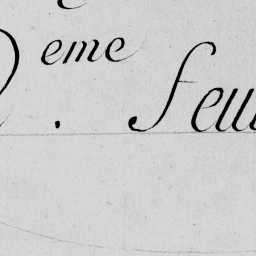 eme . feu